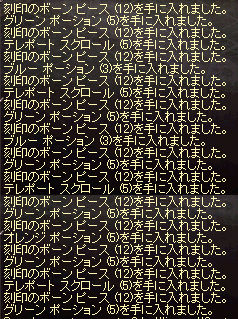 刻印のボーンピース (12)を手に入れました。
グリーン ポーション (5)を手に入れました。
刻印のボーンピース (12)を手に入れました。
テレポート スクロール (5)を手に入れました。
刻印のボーンピース (12)を手に入れました。
ブルー ポーション (3)を手に入れました。
刻印のボーンピース (12)を手に入れました。
テレポート スクロール (5)を手に入れました。
刻印のボーンピース (12)を手に入れました。
グリーン ポーション (5)を手に入れました。
刻印のボーンピース (12)を手に入れました。
ブルー ポーション (3)を手に入れました。
刻印のボーンピース (12)を手に入れました。
グリーン ポーション (5)を手に入れました。
刻印のボーンピース (12)を手に入れました。
テレポート スクロール (5)を手に入れました。
刻印のボーンピース (12)を手に入れました。
グリーン ポーション (5)を手に入れました。
刻印のボーンピース (12)を手に入れました。
オレンジ ポーション (5)を手に入れました。
刻印のボーンピース (12)を手に入れました。
グリーン ポーション (5)を手に入れました。
刻印のボーンピース (12)を手に入れました。
テレポート スクロール (5)を手に入れました。
刻印のボーンピース (12)を手に入れました。
グリーン ポーション (5)を手に入れました。